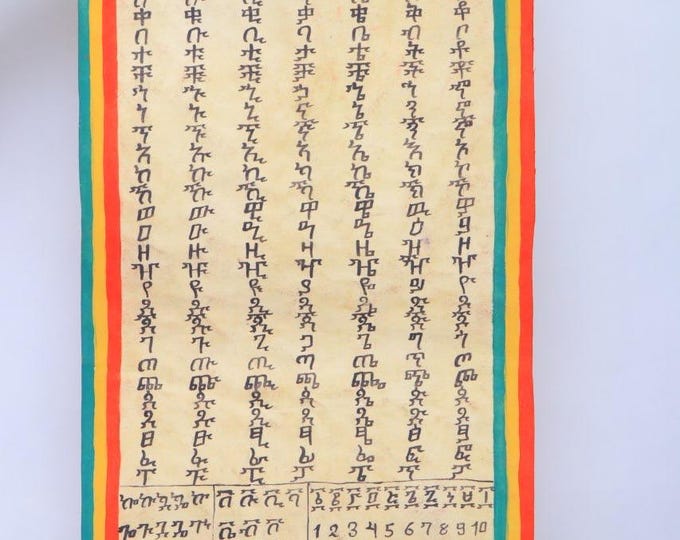 ቀ ቁ ቂ ቃ ቄ ቅ ቆ
በ ቡ ቢ ባ ቤ ብ ቦ
ተ ቱ ቲ ታ ቴ ት ቶ
ቸ ቹ ቺ ቻ ቼ ች ቾ
ኀ ኁ ኂ ኃ ኄ ኅ ኆ
ነ ኑ ኒ ና ኔ ን ኖ
ኘ ኙ ኚ ኛ ኜ ኝ ኞ
አ ኡ ኢ ኣ ኤ እ ኦ
ከ ኩ ኪ ካ ኬ ክ ኮ
ኸ ኹ ኺ ኻ ኼ ኽ ኾ
ወ ዉ ዊ ዋ ዌ ው ዎ
ዐ ዑ ዒ ዓ ዔ ዕ ዖ
ዘ ዙ ዚ ዛ ዜ ዝ ዞ
ዠ ዡ ዢ ዣ ዤ ዥ ዦ
የ ዩ ዪ ያ ዬ ይ ዮ
ደ ዱ ዲ ዳ ዴ ድ ዶ
ጀ ጁ ጂ ጃ ጄ ጅ ጆ
ገ ጉ ጊ ጋ ጌ ግ ጎ
ጠ ጡ ጢ ጣ ጤ ጥ ጦ
ጨ ጩ ጪ ጫ ጬ ጭ ጮ
ጰ ጱ ጲ ጳ ጴ ጵ ጶ
ጸ ጹ ጺ ጻ ጼ ጽ ጾ
ፀ ፁ ፂ ፃ ፄ ፅ ፆ
ፈ ፉ ፊ ፋ ፌ ፍ ፎ
ፐ ፑ ፒ ፓ ፔ ፕ ፖ
ኰ ኵ ኳ ኴ ኲ ቨ ቩ ቪ ቫ ፩ ፪ ፫ ፬ ፭ ፮ ፯ ፰ ፱ ፲
ጐ ጕ ጓ ጔ ጒ ቬ ቭ ቮ 1 2 3 4 5 6 7 8 9 10